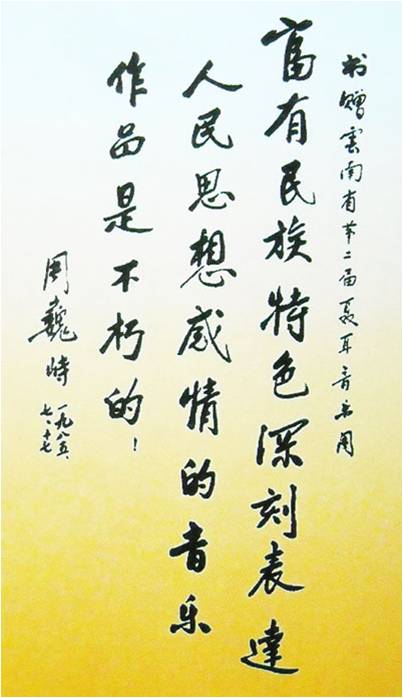 书赠雲南省第二届聂耳音乐周
富有民族特色深刻表達
人民思想感情的音乐
作品是不朽的！
周巍峙
一九八五、
七、十七